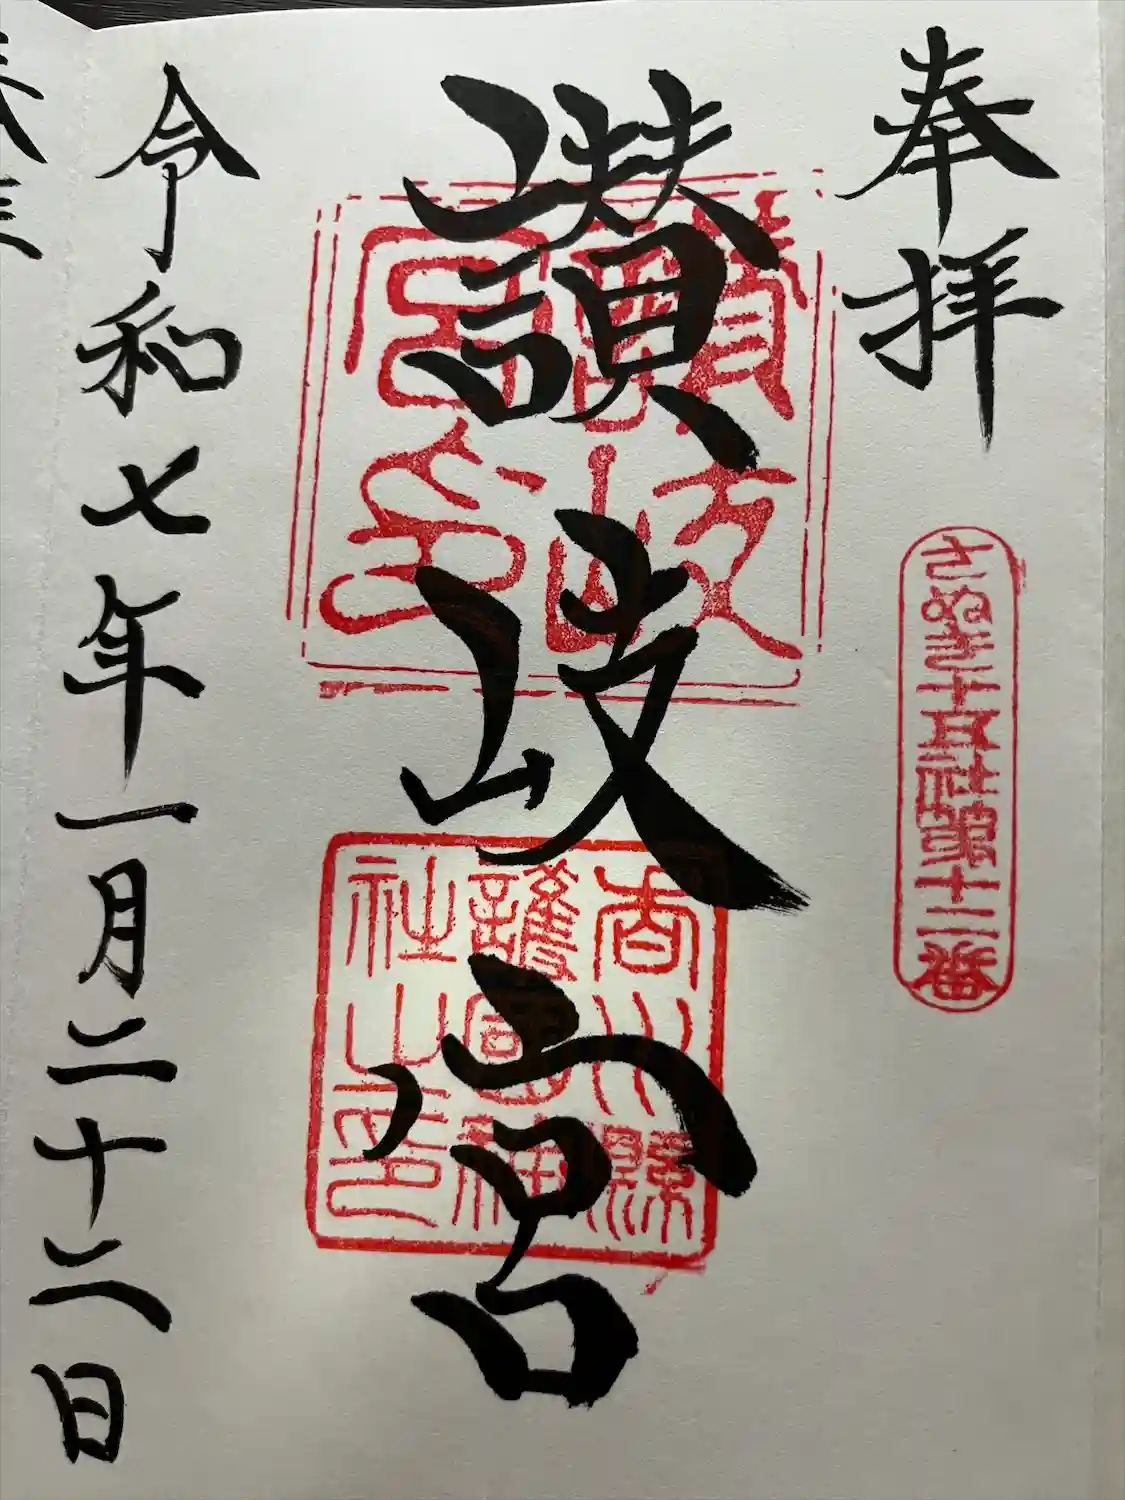 奉拝
さぬき十五社第十二番
讃岐宮
讃岐
宮印
香川縣
護國神
社之印
令和七年一月二十二日